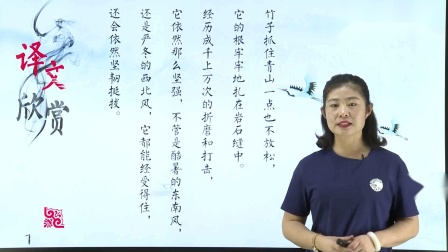 译文
欣赏
竹子抓住青山一点也不放松，
它的根牢牢地扎在岩石缝中。
经历成千上万次的折磨和打击，
它依然那么坚强，不管是酷暑的东南风，
还是严冬的西北风，它都能经受得住，
还会依然坚韧挺拔。